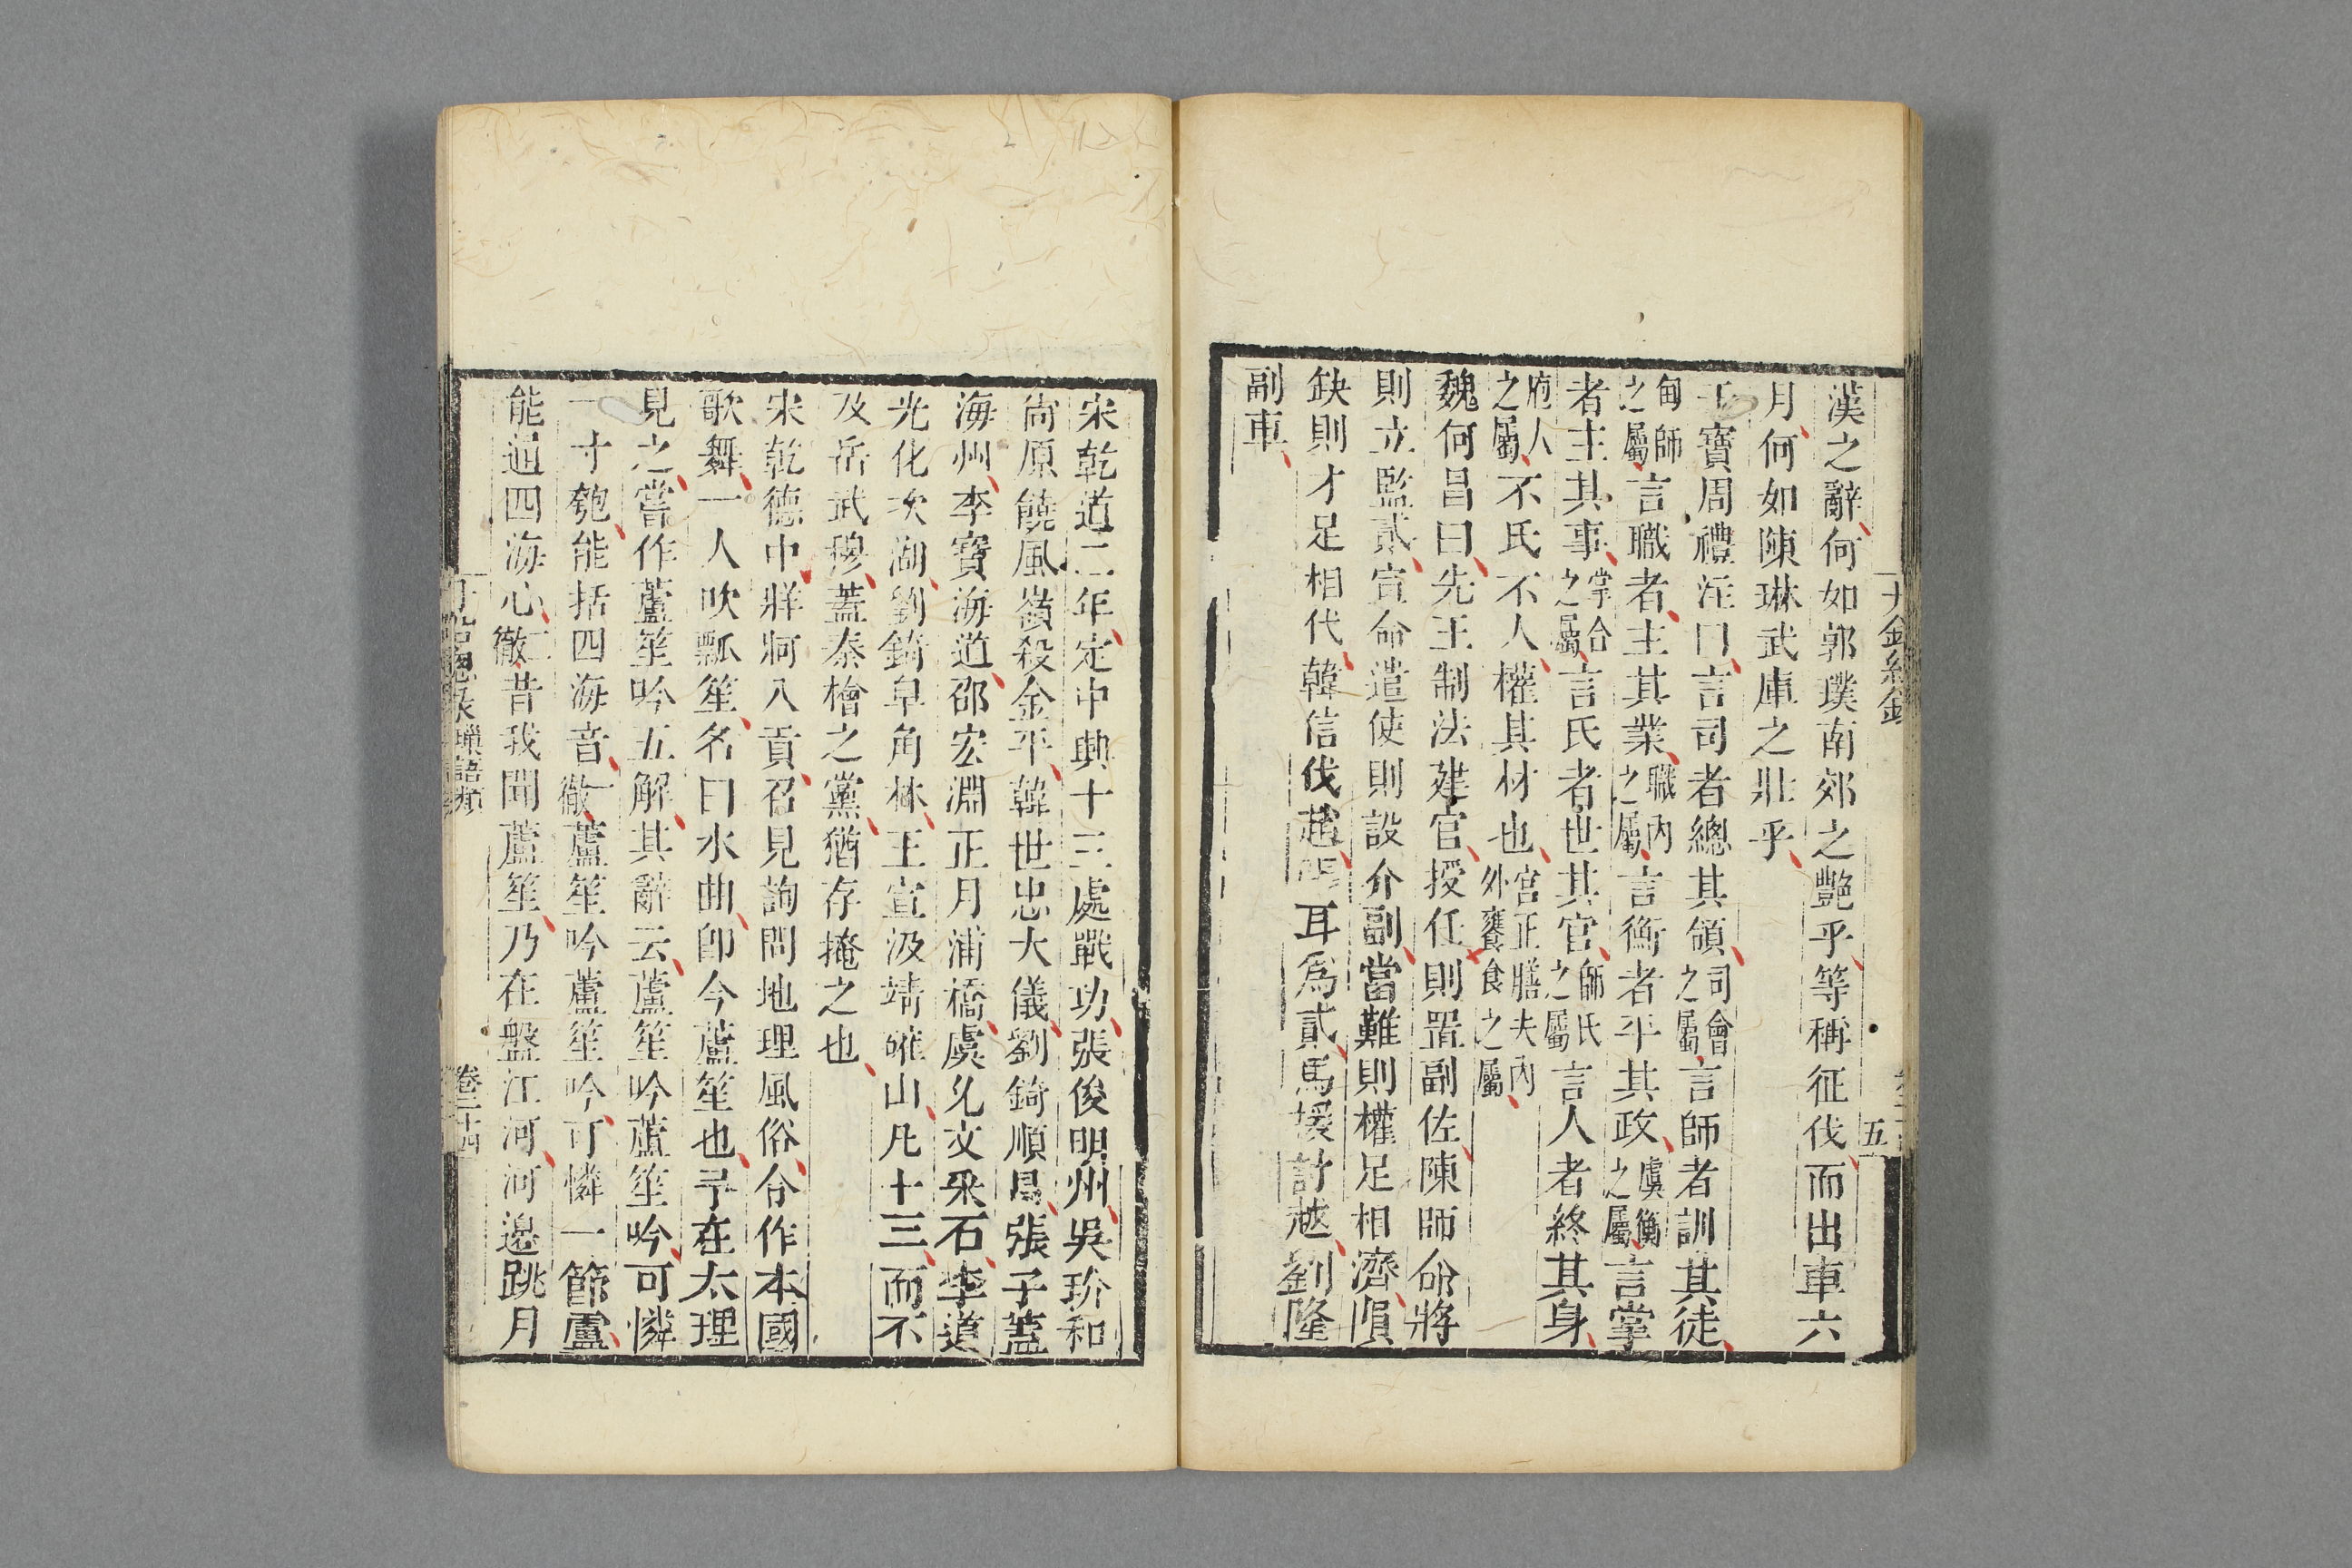 漢之辭何如郭璞南郊之艷乎等稱征伐而出車六
月何如陳琳武庫之壯乎
干寶周禮注曰言司者總其領司會之屬言師者訓其徒
甸師之屬言職者主其業職內之屬言衡者平其政虞衡之屬言掌
者主其事掌合之屬言氏者世其官師氏之屬言人者終其身
庖人之屬不氏不人權其材也宮正膳夫內外饔食之屬
魏何昌曰先王制法建官授任則置副佐陳師命將
則立監貳宣命遣使則設介副當難則權足相濟隕
缺則才足相代韓信伐趙張耳爲貳馬援討越劉隆
副車
五
宋乾道二年定中興十三處戰功張俊明州吳玠和
尚原饒風嶺殺金平韓世忠大儀劉錡順昌張子蓋
海州李寶海道邵宏淵正月浦橋虞允文采石李道
光化次湖劉錡皁角林王宣汲靖確山凡十三而不
及岳武穆蓋秦檜之黨猶存掩之也
宋乾德中牂牁入貢召見詢問地理風俗令作本國
歌舞一人吹瓢笙名曰水曲卽今蘆笙也予在大理
見之嘗作蘆笙吟五解其辭云蘆笙吟蘆笙吟可憐
一寸匏能括四海音一徹蘆笙吟蘆笙吟可憐一節蘆
能通四海心二徹昔我聞蘆笙乃在盤江河河邊跳月
卷二十四